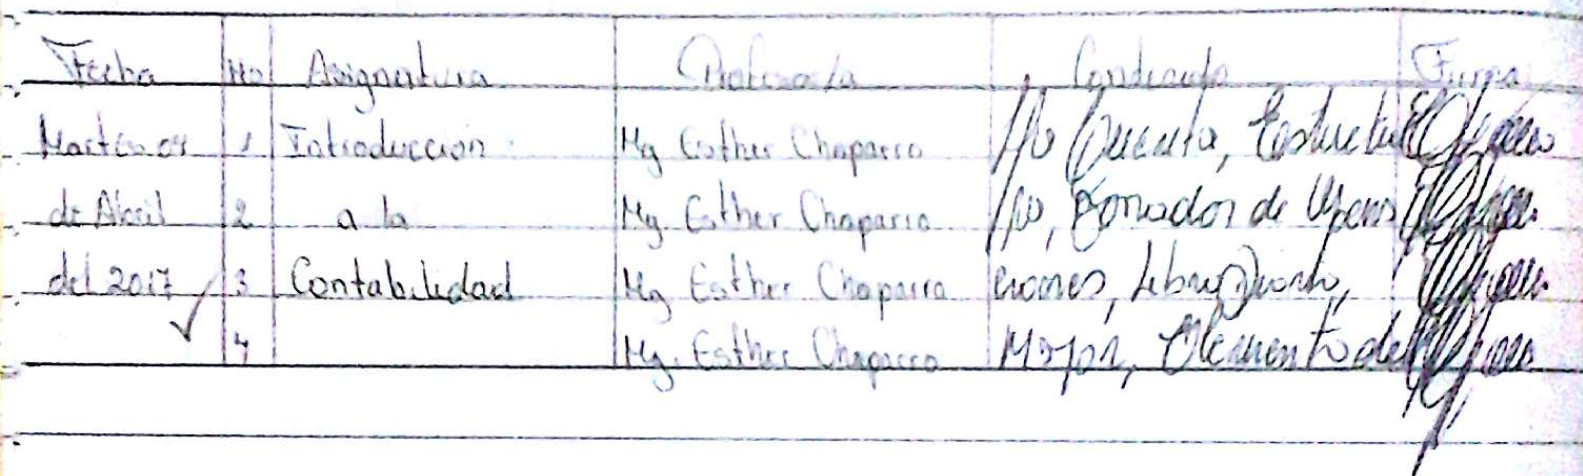 Fecha No Asignatura Profesor/a Contenido Firma
Martes 04 1 Introducción Mg Esther Chaparro La Cuenta, Estructu
de Abril 2 a la Mg. Esther Chaparro de
del 2017 3 Contabilidad Mg Esther Chaparro ciones, Libro Diario,
4 Mg. Esther Chaparro Mayor, Elemento de